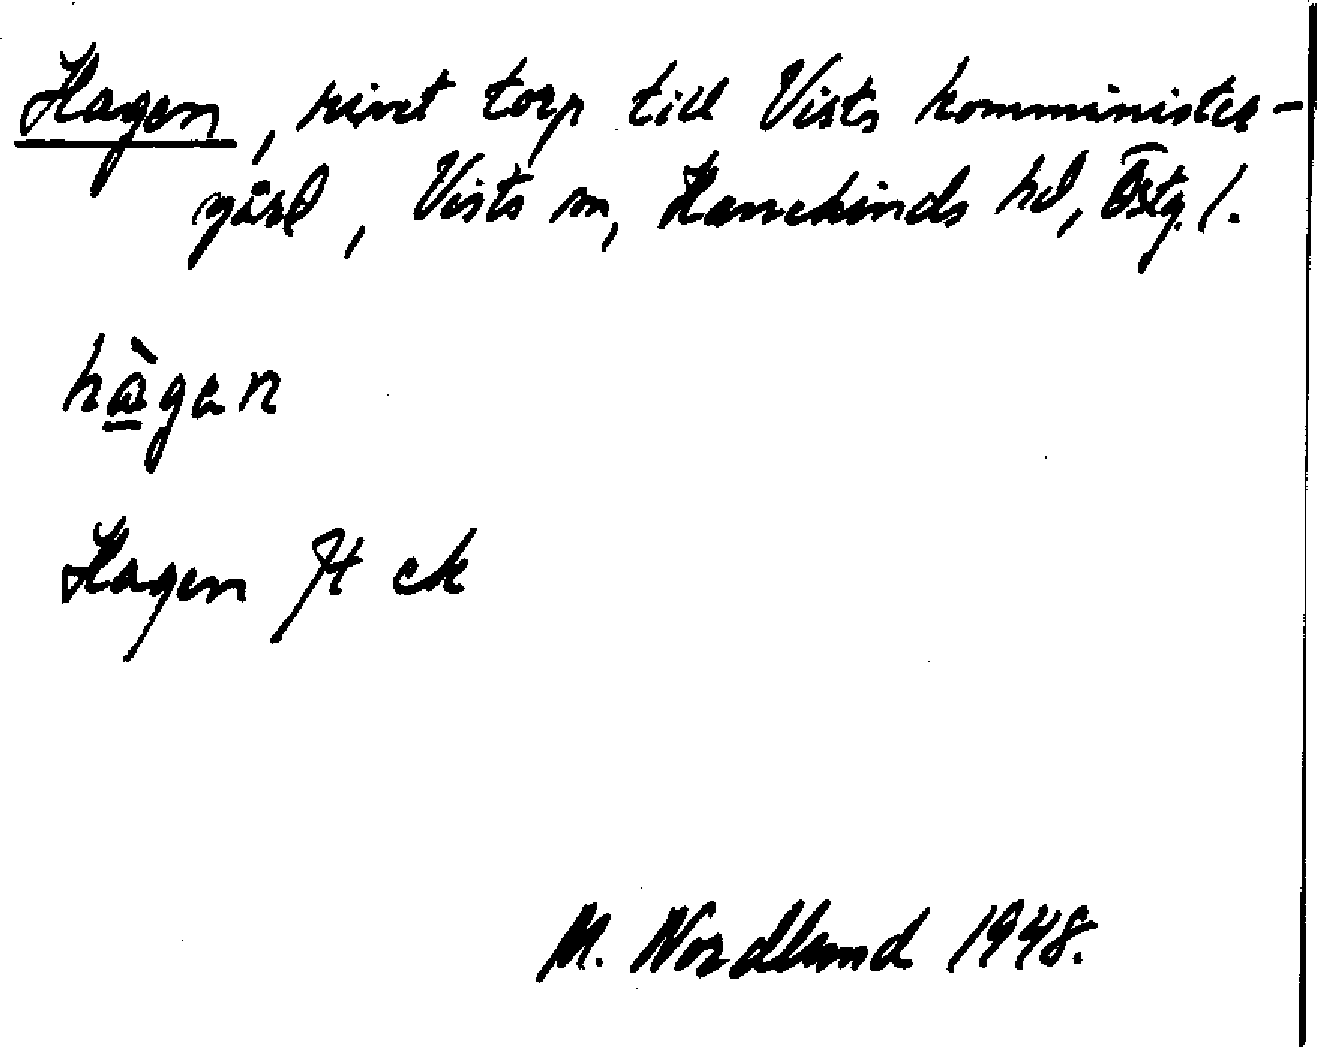 Hagen, rivet torp till Vists komminister-
gård, Vists sn, Hanekinds hd, Östg. l.
hàgen
Hagen Jt ck
M. Nordlund 1948.